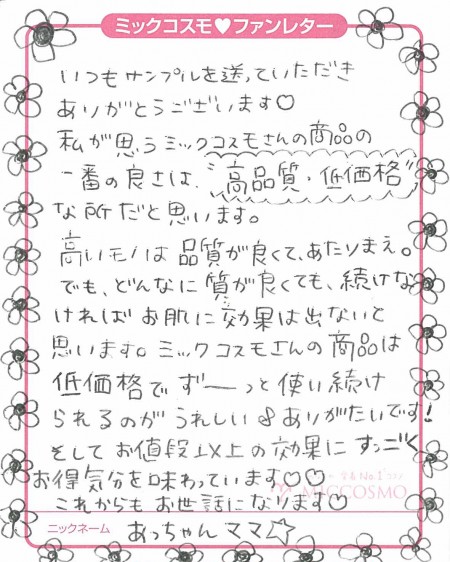 ミックコスモ♥ファンレター
いつもサンプルを送っていただき
ありがとうございます♡
私が思うミックコスモさんの商品の
一番の良さは、"高品質・低価格"
な所だと思います。
高いモノは品質が良くて、あたりまえ。
でも、どんなに質が良くても、続けな
ければお肌に効果は出ないと
思います。ミックコスモさんの商品は
低価格でずーっと使い続け
られるのがうれしい♪ありがたいです!
そしてお値段以上の効果にすっごく
お得気分を味わっています♡♡
これからもお世話になります♡
MICCOSMO
ニックネーム あっちゃんママ☆